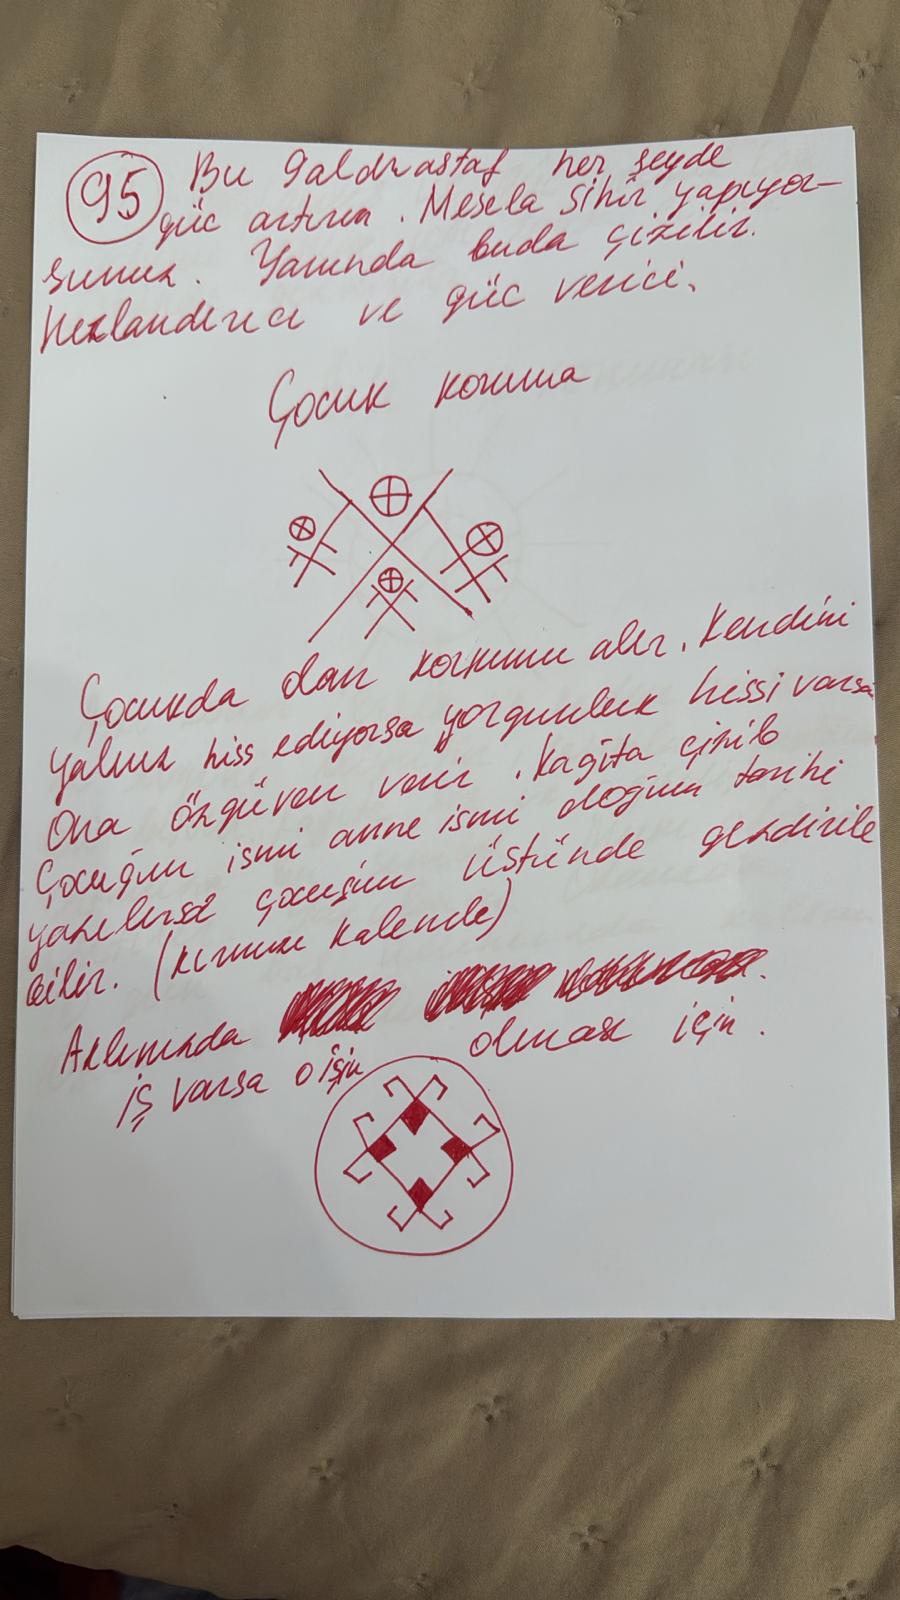 95 Bu galdrastaf her şeyde
güc artırır. Mesela Sihir yapıyor-
sunuz. Yanında buda çizilir.
Hızlandırıcı ve güc verici.
Çocuk koruma
Çocukda olan korkunu alır. Kendini
yalnız hiss ediyorsa yorgunluk hissi varsa
Ona özgüven verir. Kağıta çizilb
Çocuğun ismi anne ismi doğum tarihi
yazılırsa çocuğun üstünde gezdirile
bilir. (kırmızı kalemle)
Aklınızda
iş varsa o işin olması için.